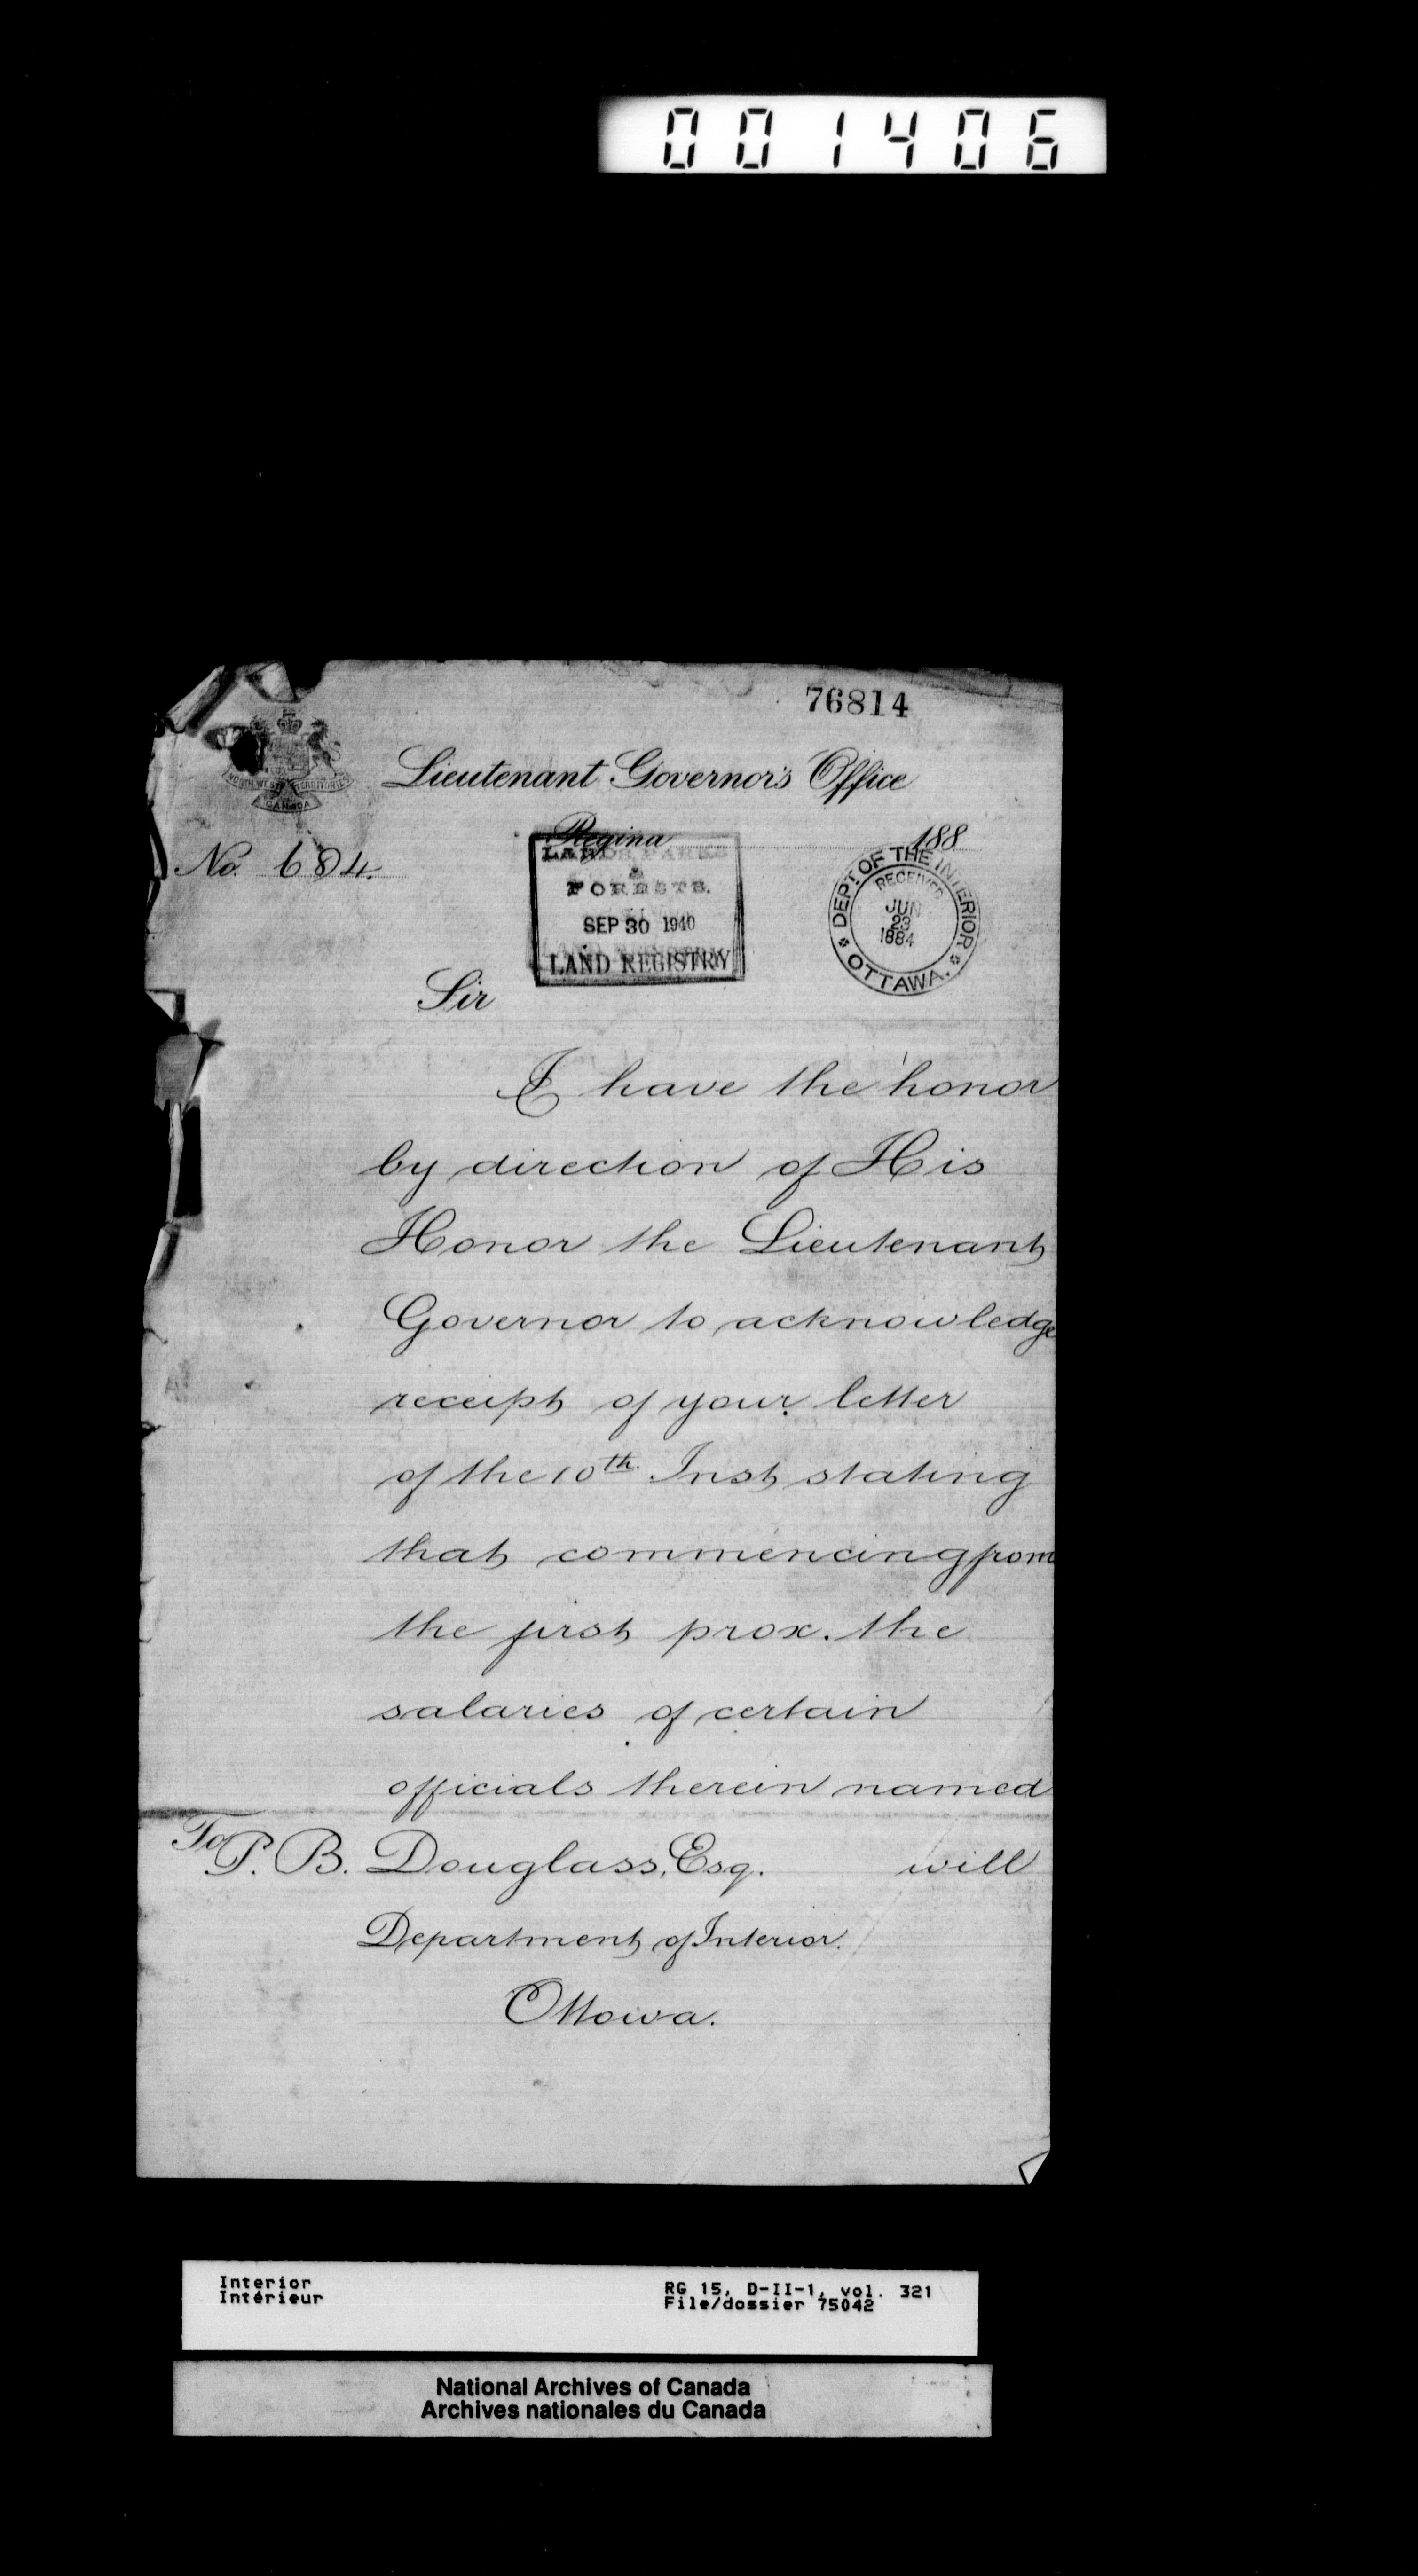 001406
76814
NORTH WEST TERRITORIES
CANADA
Lieutenant Governor's Office
Regina 188
No. 684.
LANDS, PARKS
&
FORESTS.
SEP 30 1940
LAND REGISTRY
DEPT. OF THE INTERIOR
RECEIVED
JUN
23
1884
OTTAWA.
Sir
I have the honor
by direction of His
Honor the Lieutenant
Governor to acknowledge
receipt of your letter
of the 10th. Inst stating
that commencing from
the first prox. the
salaries of certain
officials therein named
will
To P. B. Douglass, Esq.
Department of Interior.
Ottowa.
Interior
Intérieur
RG 15, D-II-1, vol. 321
File/dossier 75042
National Archives of Canada
Archives nationales du Canada